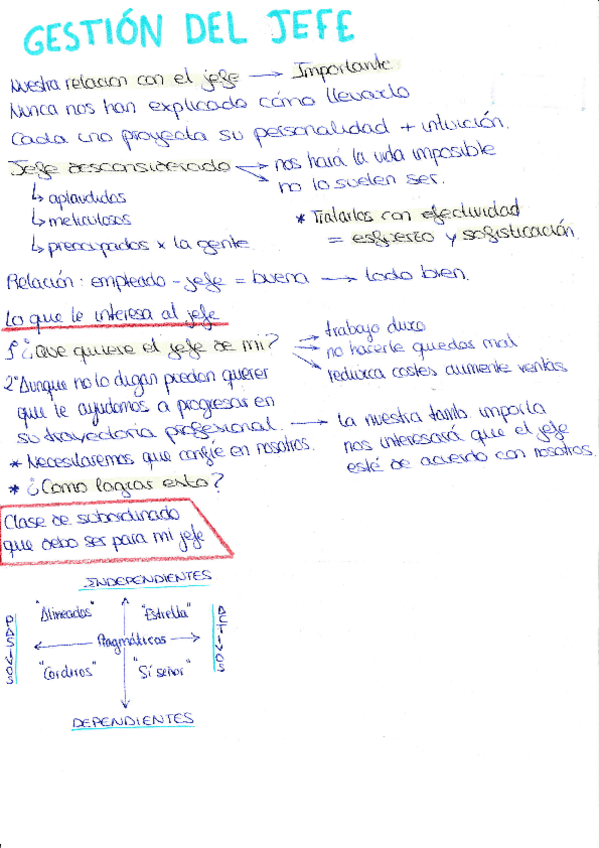 GESTIÓN DEL JEFE
Nuestra relacion con el jefe → Importante.
Nunca nos han explicado cómo llevarlo
Cada uno proyecta su personalidad + intuición.
Jefe desconsiderado → nos hará la vida imposible
→ no lo suelen ser.
↳ aplaudidos
↳ meticulosos
↳ preocupados x la gente.
* Tratarlos con efectividad
= esfuerzo y sofisticación.
Relación: empleado - jefe = buena → todo bien.
Lo que le interesa al jefe
1º ¿Que quiere el jefe de mi? → trabajo duro
→ no hacerle quedar mal
→ reduzca costes aumente ventas
2º Aunque no lo digan pueden querer
que le ayudemos a progresar en
su trayectoria profesional. → la nuestra tanto importa
nos interesará que el jefe
esté de acuerdo con nosotros.
* Necesitaremos que confíe en nosotros.
* ¿Como lograr esto?
Clase de subordinado
que debo ser para mi jefe
INDEPENDIENTES
"Alineados" "Estrella"
PASIVOS ← Pragmáticos → ACTIVOS
"Corderos" "Sí señor"
DEPENDIENTES